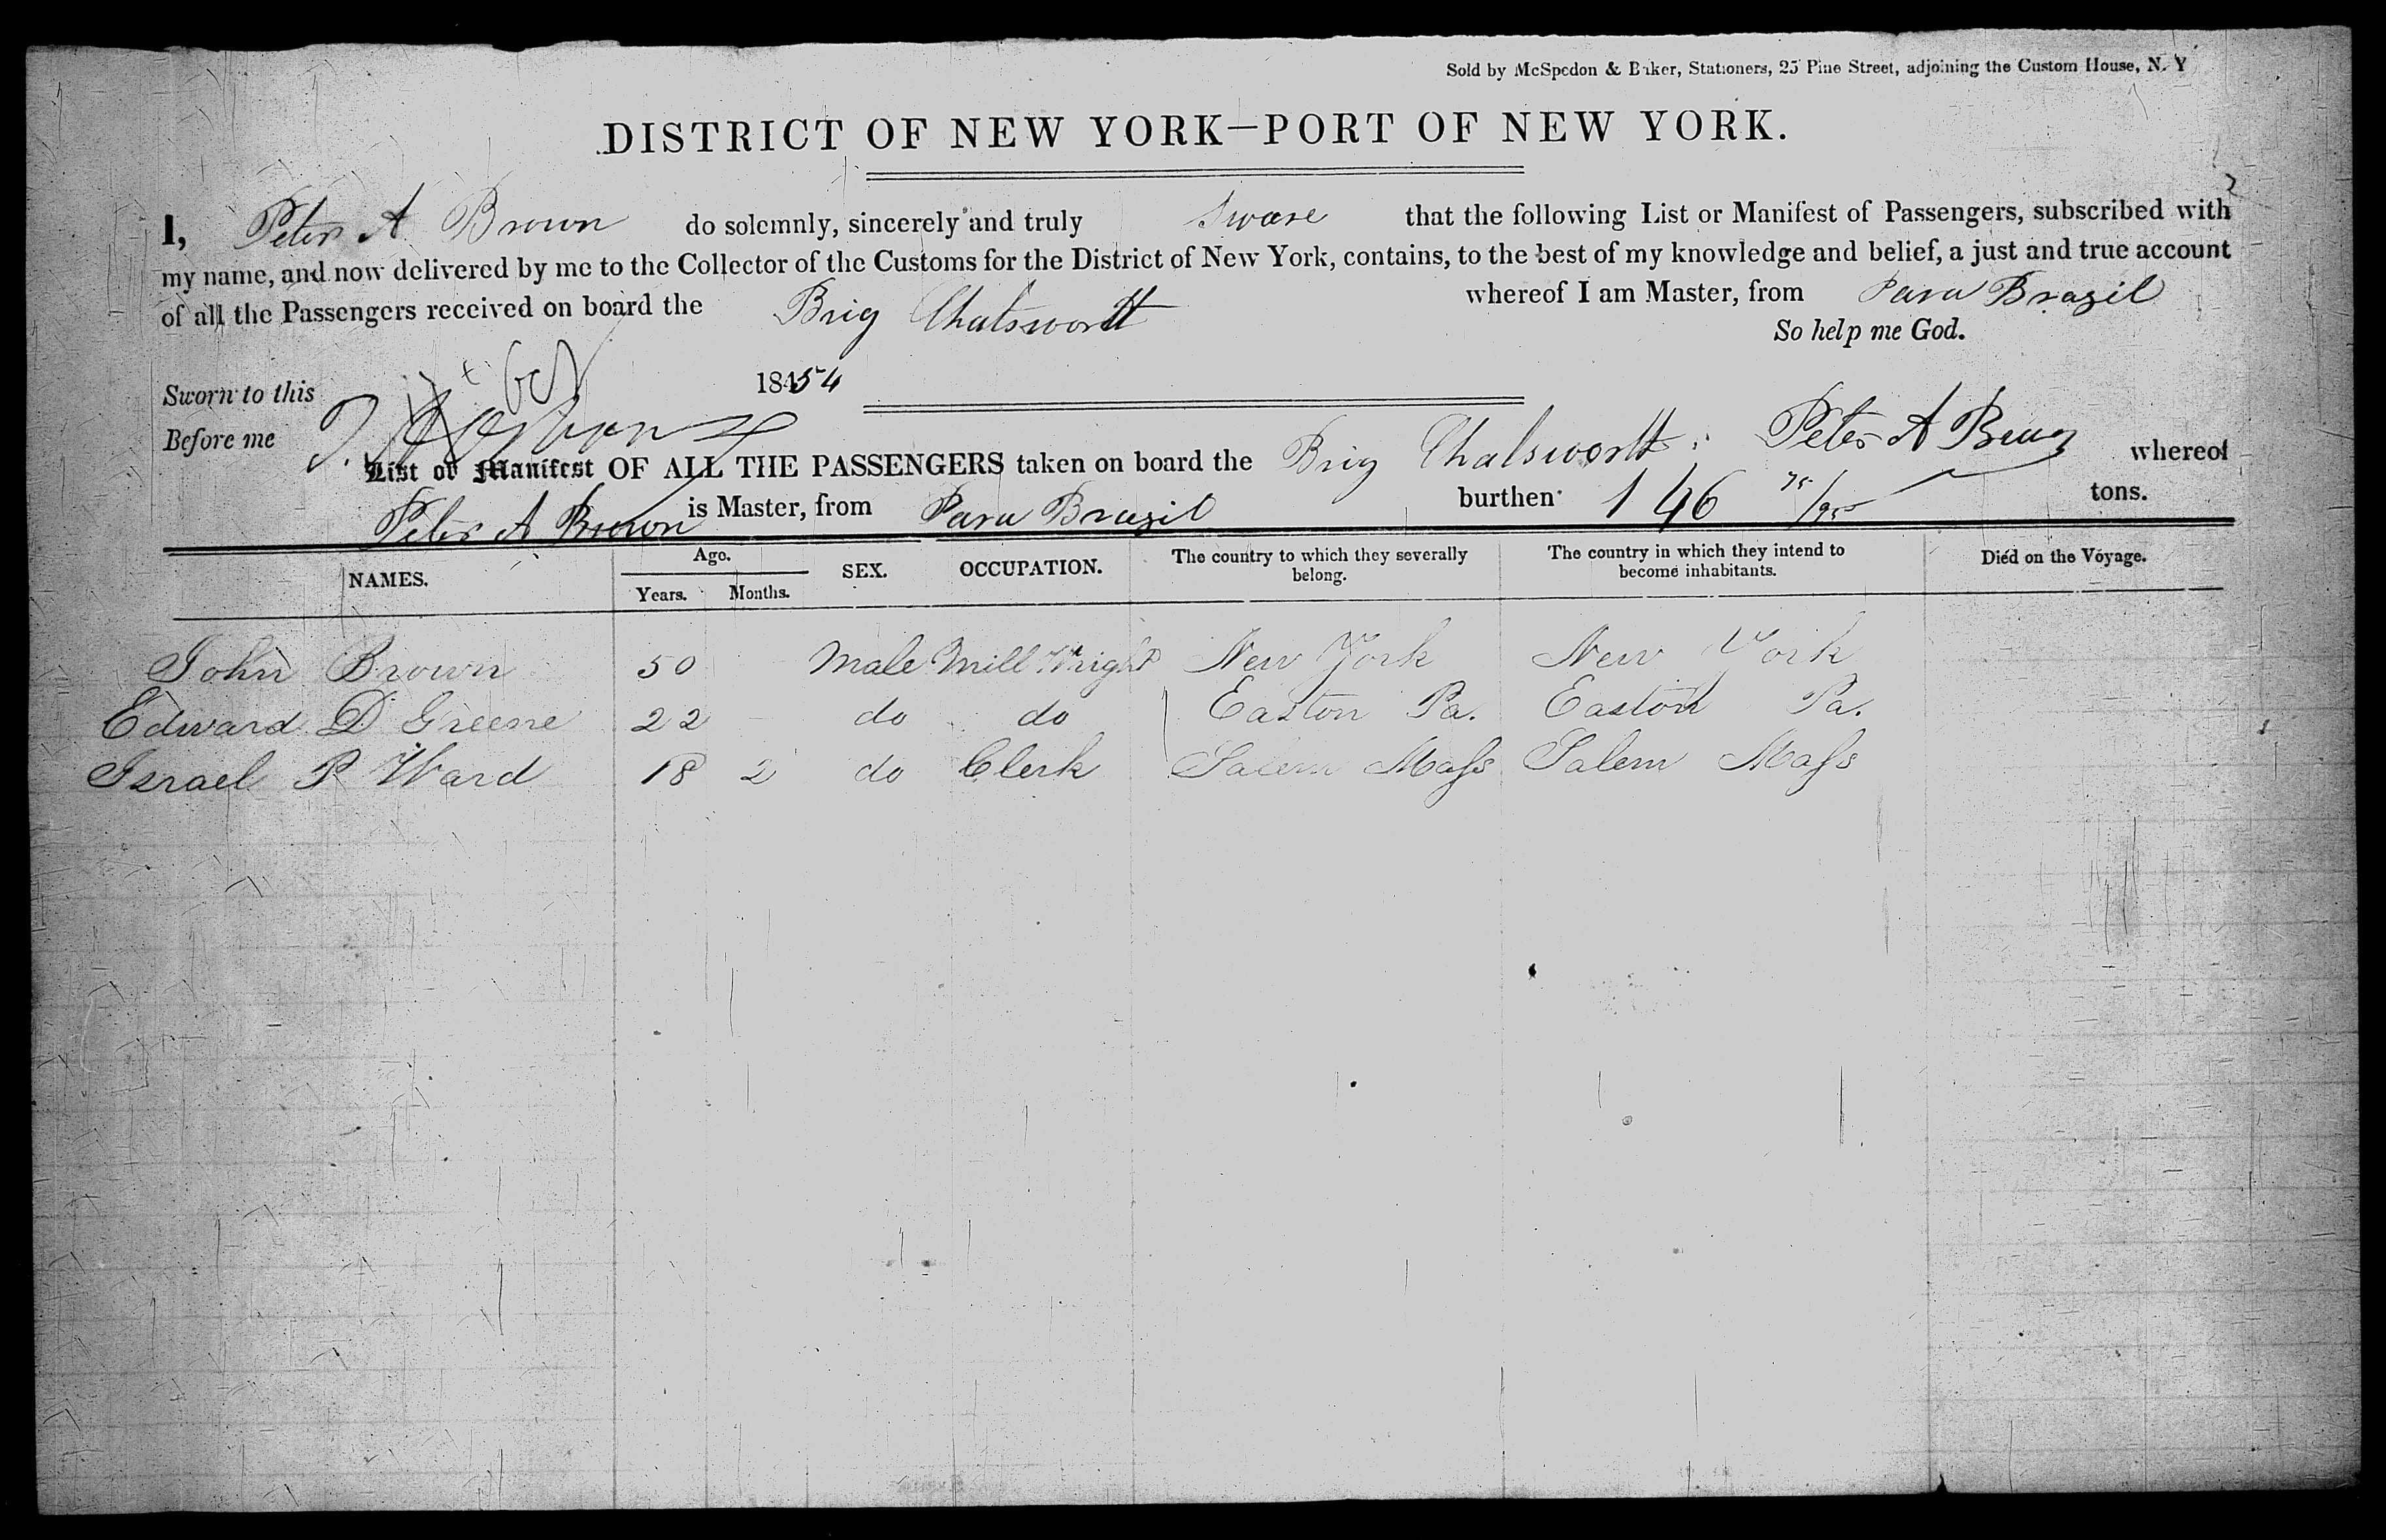 Sold by McSpedon & Baker, Stationers, 25 Pine Street, adjoining the Custom House, N. Y
DISTRICT OF NEW YORK—PORT OF NEW YORK.
I, Peter A Brown do solemnly, sincerely and truly Sware that the following List or Manifest of Passengers, subscribed with
my name, and now delivered by me to the Collector of the Customs for the District of New York, contains, to the best of my knowledge and belief, a just and true account
of all the Passengers received on board the Brig Chatsworth whereof I am Master, from Para Brazil
So help me God.
Sworn to this 1854
Before me
Peter A Brown
List or Manifest OF ALL THE PASSENGERS taken on board the Brig Chatsworth whereof
Peter A Brown is Master, from Para Brazil burthen 146 75/95 tons.
NAMES. Age. Years. Months. SEX. OCCUPATION. The country to which they severally belong. The country in which they intend to become inhabitants. Died on the Voyage.
John Brown 50 Male Mill Wright New York New York
Edward D Greene 22 do do Easton Pa. Easton Pa.
Israel P Ward 18 2 do Clerk Salem Mass Salem Mass